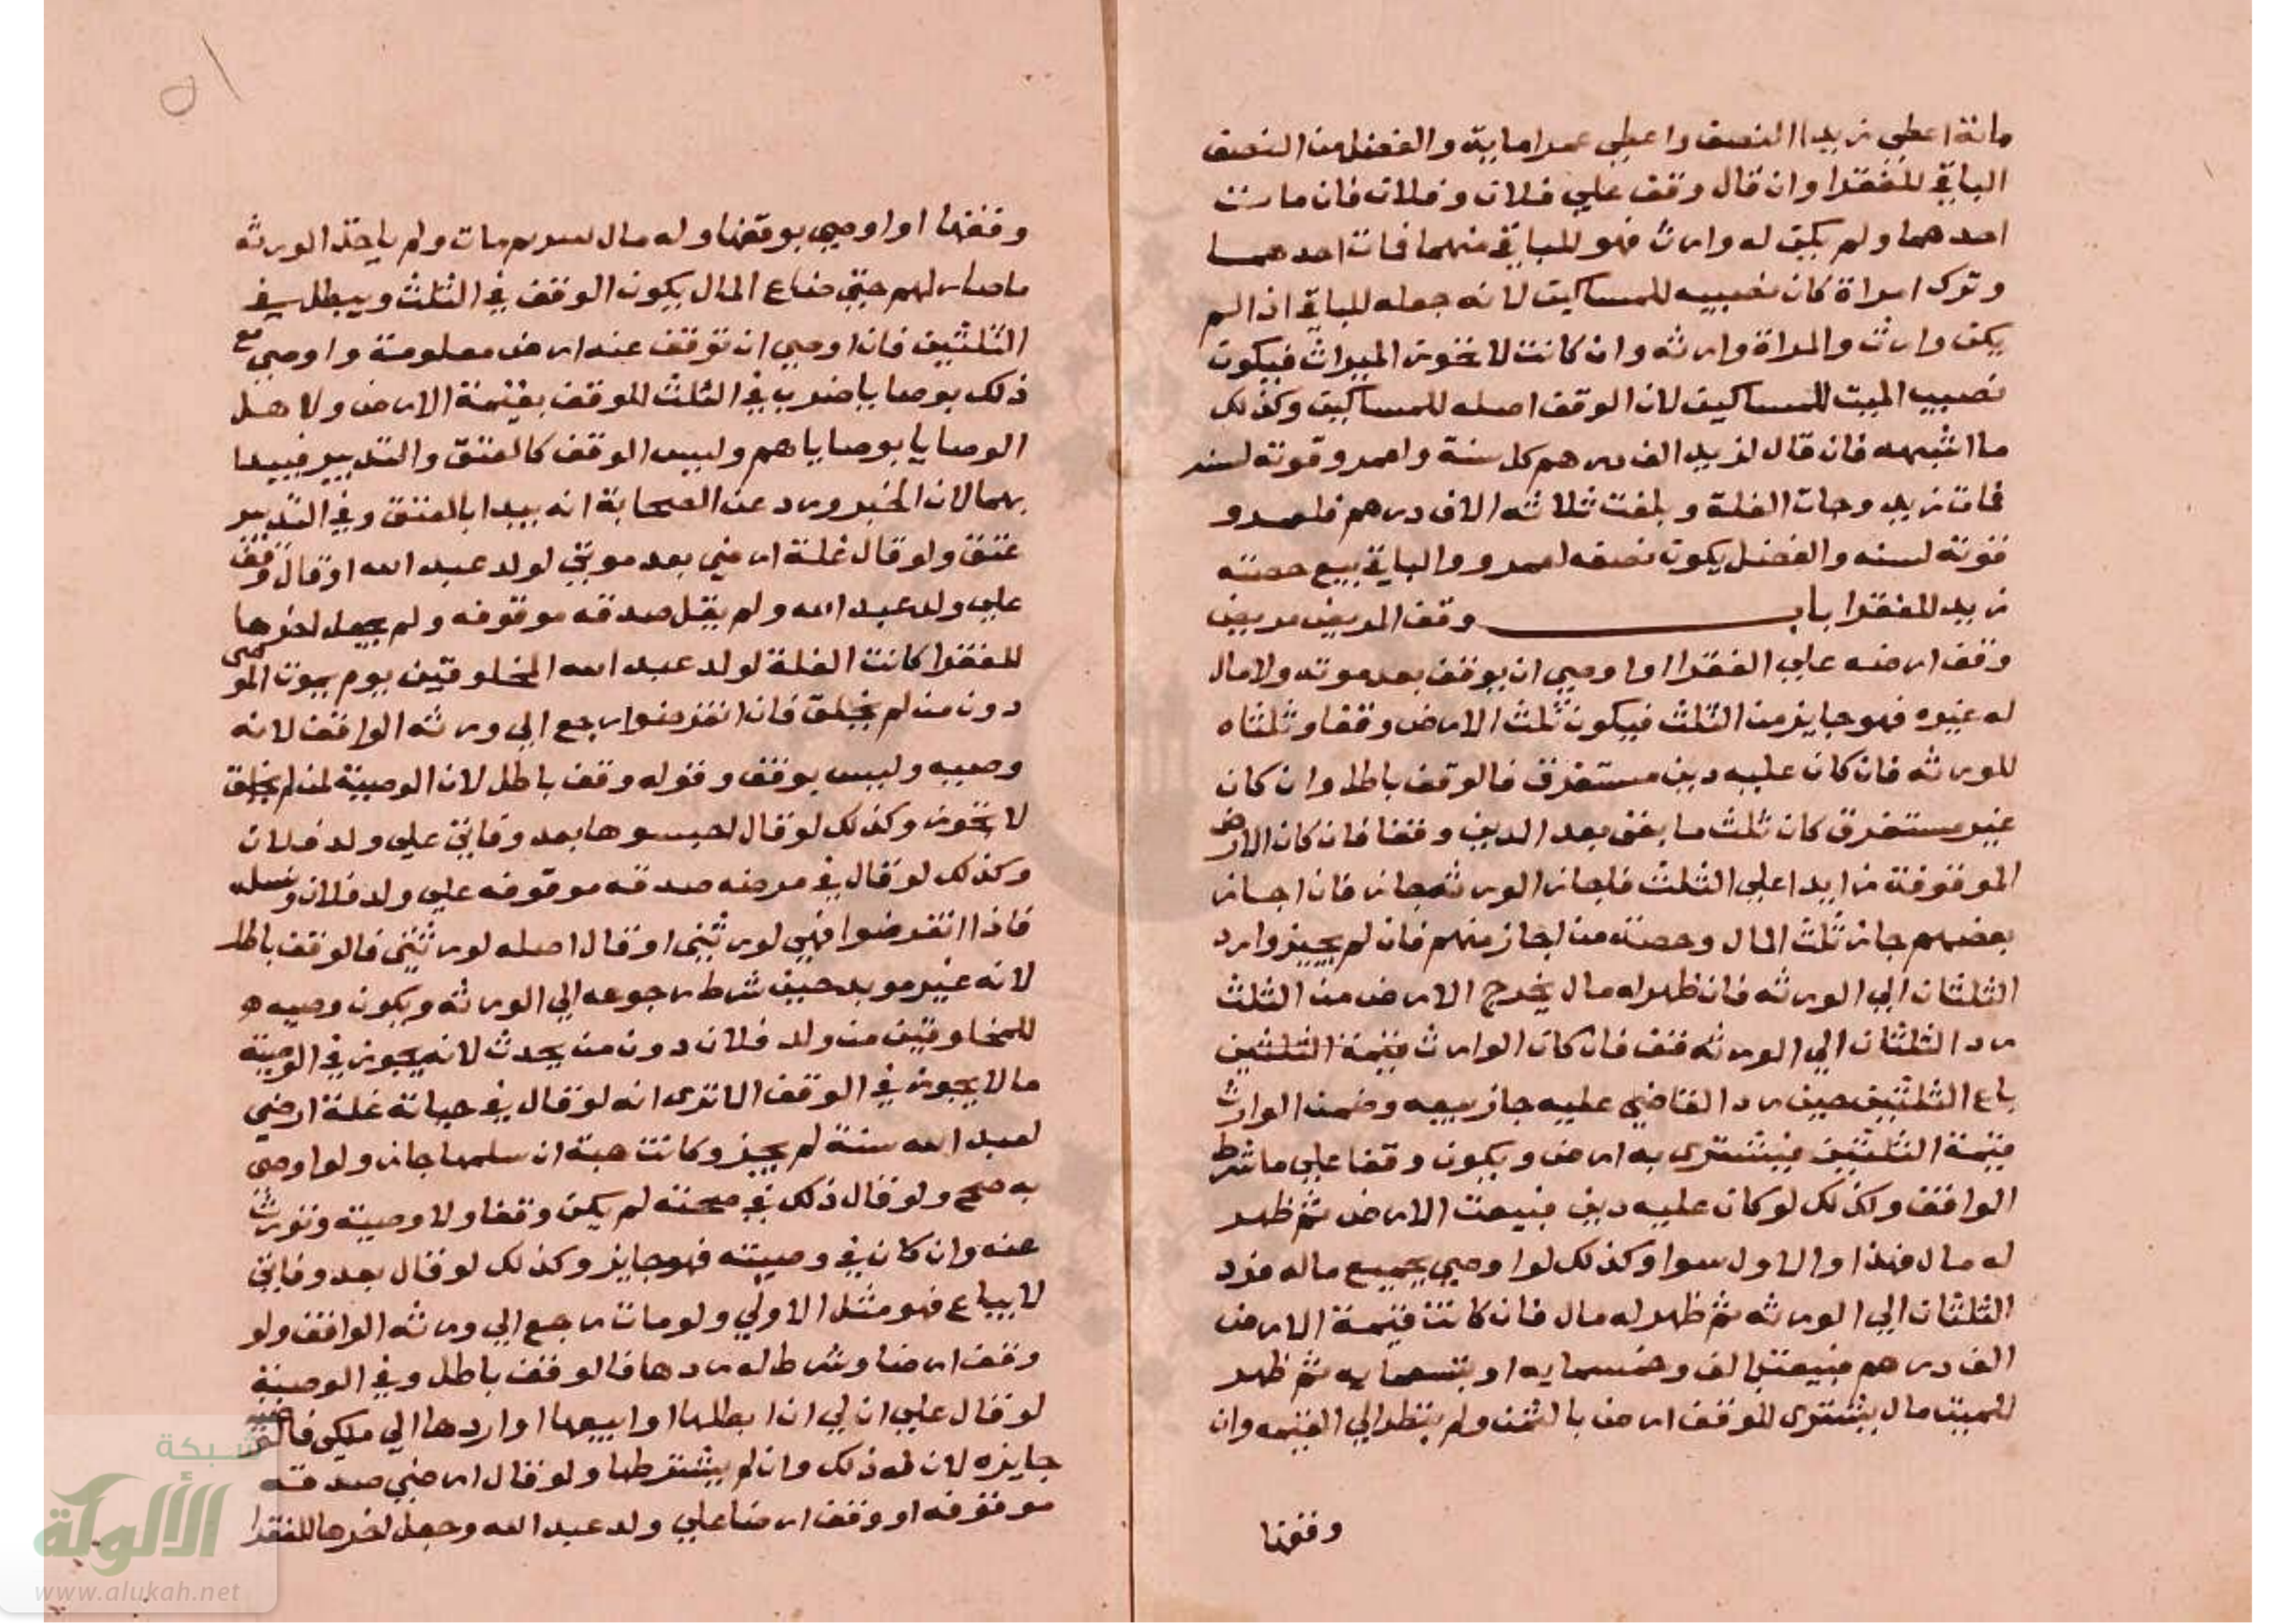 مائة اعطي زيدا النصف واعطي عمرا ماية والفضل من النصف
الباقي للفقرا وان قال وقف علي فلان وفلان فان مات
احدهما ولم يكن له وارث فهو للباقي منهما فمات احدهما
وترك امراة كان نصيبه للمساكين لانه جعله للباقي اذا لم
يكن وارث والمراة وارثه وان كانت لا تحوز الميراث فيكون
نصيب الميت للمساكين لان الوقف اصله للمساكين وكذلك
ما اشبهه فان قال لزيد الف درهم كل سنة ولعمرو قوته لسنه
فمات زيد وجات الغلة وبلغت ثلاثه الاف درهم فلعمرو
قوته لسنه والفضل يكون نصفه لعمرو والباقي بيع حصته
زيد للفقرا باب وقف المريض مريض
وقف ارضه علي الفقرا او اوصي ان يوقف بعد موته ولا مال
له غيره فهو جايز من الثلث فيكون ثلث الارض وقفا وثلثاه
للورثه فان كان عليه دين مستغرق فالوقف باطل وان كان
غير مستغرق كان ثلث ما بقي بعد الدين وقفا فان كان الارض
الموقوفة زايدا علي الثلث فاجاز الورثه جاز فان اجاز
بعضهم جاز ثلث المال وحصة من اجاز منهم فان لم يجيزوا رد
الثلثان الي الورثه فان ظهر له مال يخرج الارض من الثلث
رد الثلثان الي الورثه فقف فان كان الوارث قيمة الثلثين
باع الثلثين حين رد القاضي عليه جاز بيعه وضمن الوارث
قيمة الثلثين فيشتري به ارض ويكون وقفا علي ما شرط
الواقف وكذلك لو كان عليه دين فبيعت الارض ثم ظهر
له مال فهذا والاول سوا وكذلك لو اوصي بجميع ماله فرد
الثلثان الي الورثه ثم ظهر له مال فان كانت قيمة الارض
الف درهم فبيعت بالف وخمسمايه او بتسعمايه ثم ظهر
للميت مال يشتري للوقف ارض بالثمن ولم ينظر الي القيمه وان
وقفها
٥١
وقفها او اوصي بوقفها وله مال سرم مات ولم ياخذ الورثه
ما صار لهم حتي ضاع المال يكون الوقف في الثلث ويبطل في
الثلثين فان اوصي ان توقف عنه ارض معلومة واوصي مع
ذلك بوصايا ضرب في الثلث للوقف بقيمة الارض ولاهل
الوصايا بوصاياهم وليس الوقف كالعتق والتدبير فيبدا
بهما لان الخبر ورد عن الصحابة انه يبدا بالعتق وفي التدبير
عتق ولو قال غلة ارضي بعد موتي لولد عبد الله او قال وقف
علي ولد عبد الله ولم يقل صدقه موقوفه ولم يجعل اخرها
للفقرا كانت الغلة لولد عبد الله المخلوقين يوم يموت الموصي
دون من لم يخلق فان انقرضوا رجع الي ورثه الواقف لانه
وصيه وليس بوقف وقوله وقف باطل لان الوصية لمن لم يخلق
لا تجوز وكذلك لو قال احبسوها بعد وفاتي علي ولد فلان
وكذلك لو قال في مرضه صدقه موقوفه علي ولد فلان ونسله
فاذا انقرضوا فهي لورثتي او قال اصله لورثتي فالوقف باطل
لانه غير موبد حين شرط رجوعه الي الورثه ويكون وصيه
للمخلوقين من ولد فلان دون من يحدث لانه يجوز في الوصية
ما لا يجوز في الوقف الا تري انه لو قال في حياته غلة ارضي
لعبد الله سنة لم يجز وكانت هبة ان سلمها جاز ولو اوصي
به صح ولو قال ذلك في صحته لم يكن وقفا ولا وصية وتورث
عنه وان كان في وصيته فهو جايز وكذلك لو قال بعد وفاتي
لا يباع فهو مثل الاولي ولو مات رجع الي ورثه الواقف ولو
وقف ارضا وشرط له ردها فالوقف باطل وفي الوصية
لو قال علي ان لي ان ابطلها او ابيعها او اردها الي ملكي فالوصية
جايزه لان له ذلك وان لم يشترطها ولو قال ارضي صدقة
موقوفه او وقف ارضا علي ولد عبد الله وجعل اخرها للفقرا
شبكة
الألوكة
www.alukah.net